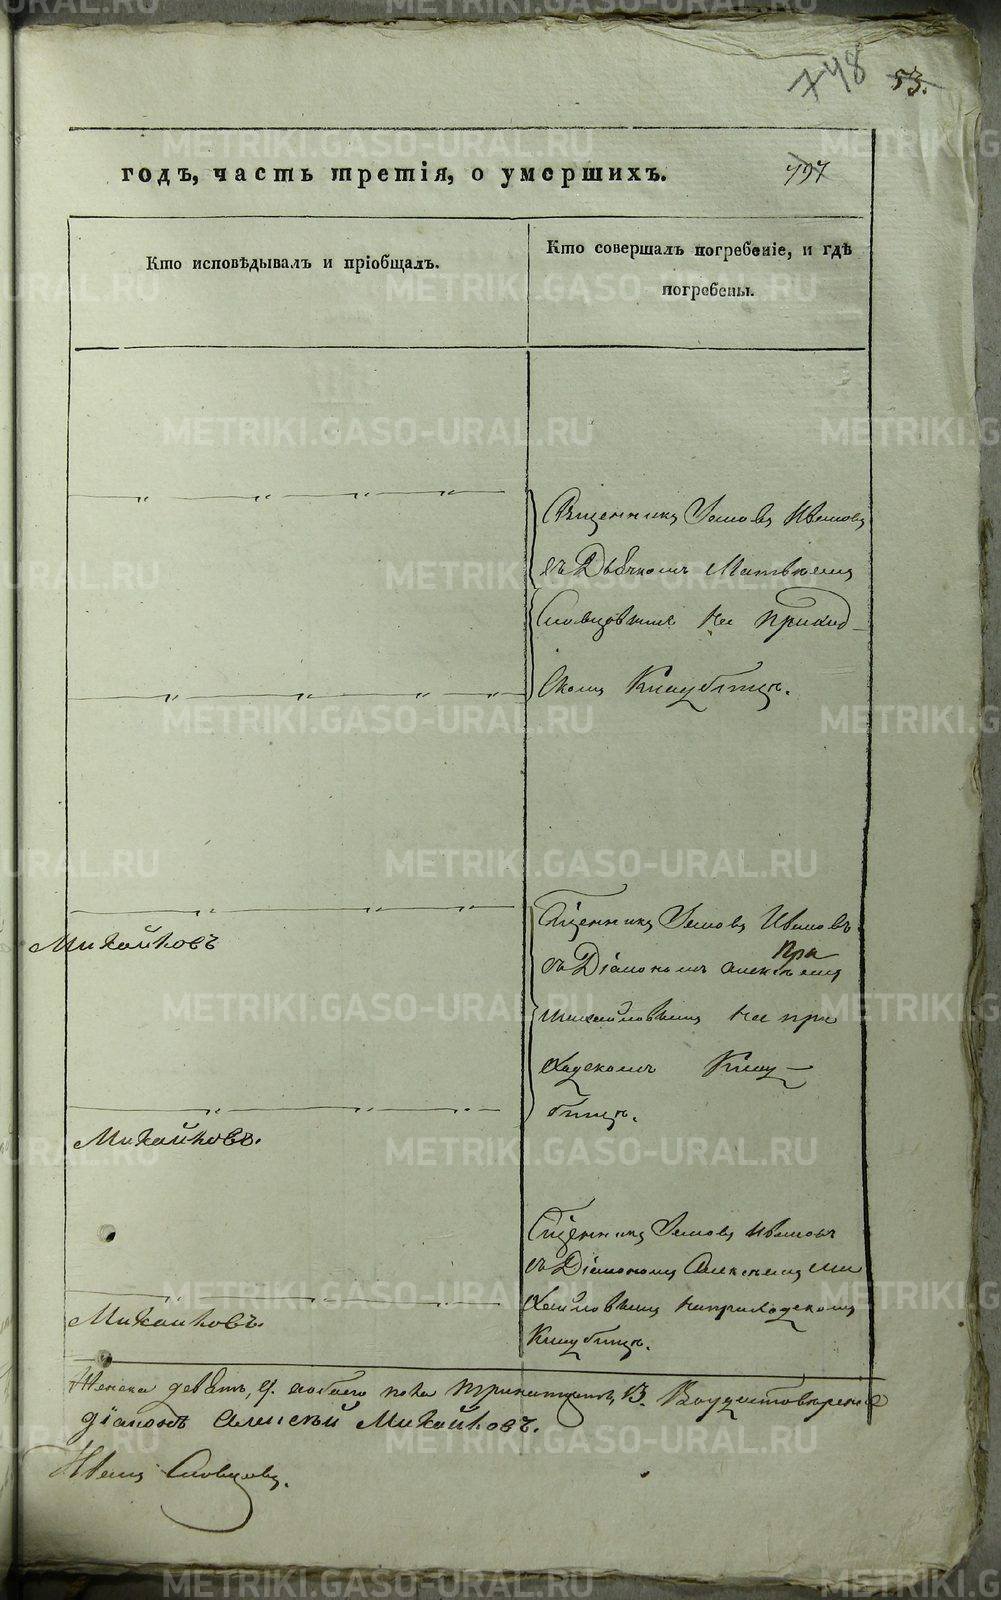 748 53.
годъ, часть третія, о умершихъ. 797
Кто исповѣдывалъ и пріобщалъ.
Кто совершалъ погребеніе, и гдѣ
погребены.
Священникъ Іаковъ Ивановъ
съ Дьячкомъ Матвѣемъ
Словцовымъ на приход-
скомъ Кладбищѣ.
Михайловъ
Сщенникъ Іаковъ Ивановъ
съ Діакономъ Алексѣемъ
Михайловымъ на при
ходскомъ Клад-
бищѣ.
Михайловъ.
Сщенникъ Іаковъ Ивановъ
съ Діакономъ Алексѣемъ Ми
хайловымъ на приходскомъ
Кладбищѣ.
Михайловъ.
Женска девять, 9. обоего пола тринатцать, 13.
діаконъ Алексѣй Михайловъ.
Иванъ Словцовъ.
METRIKI.GASO-URAL.RU